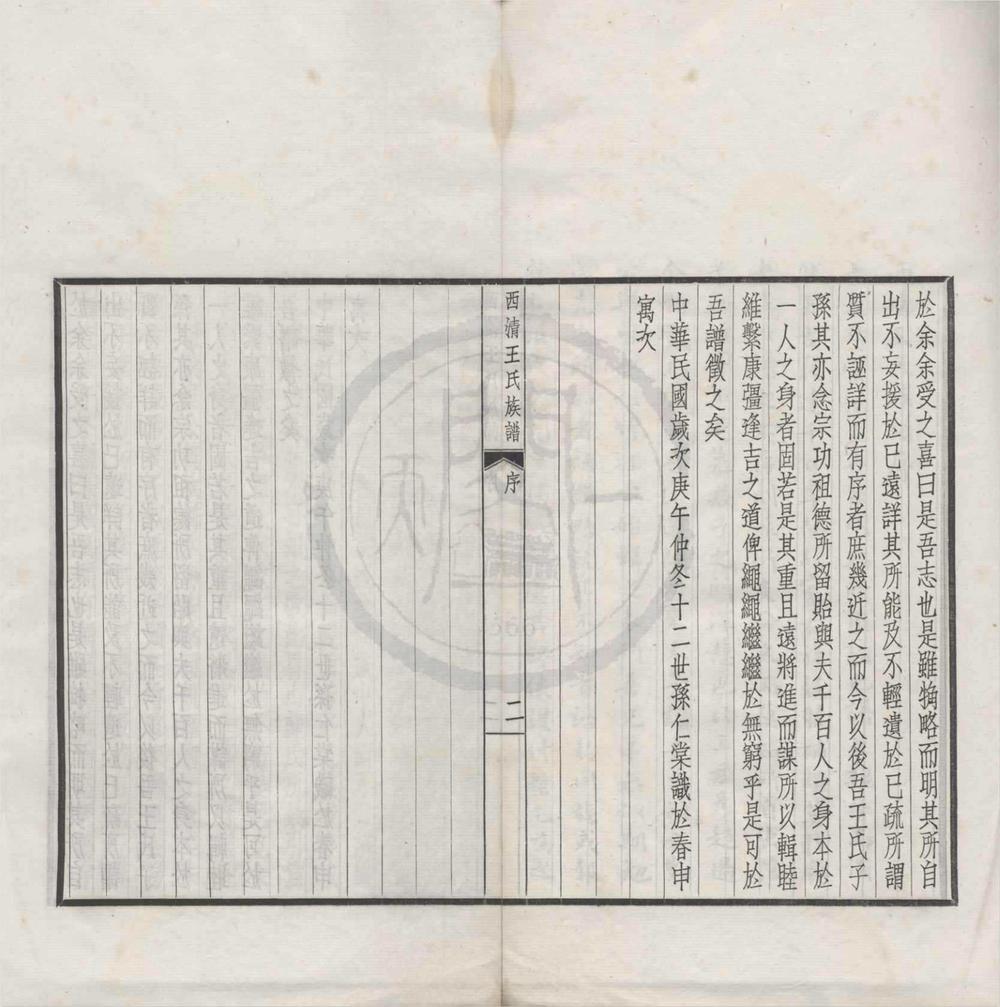 於余余受之喜曰是吾志也是雖觕略而明其所自
出不妄援於已遠詳其所能及不輕遺於已疏所謂
質不誣詳而有序者庶幾近之而今以後吾王氏子
孫其亦念宗功祖德所留貽與夫千百人之身本於
一人之身者固若是其重且遠將進而謀所以輯睦
維繫康彊逢吉之道俾繩繩繼繼於無窮乎是可於
吾譜徵之矣
中華民國歲次庚午仲冬十二世孫仁棠識於春申
寓次
西清王氏族譜
序
二